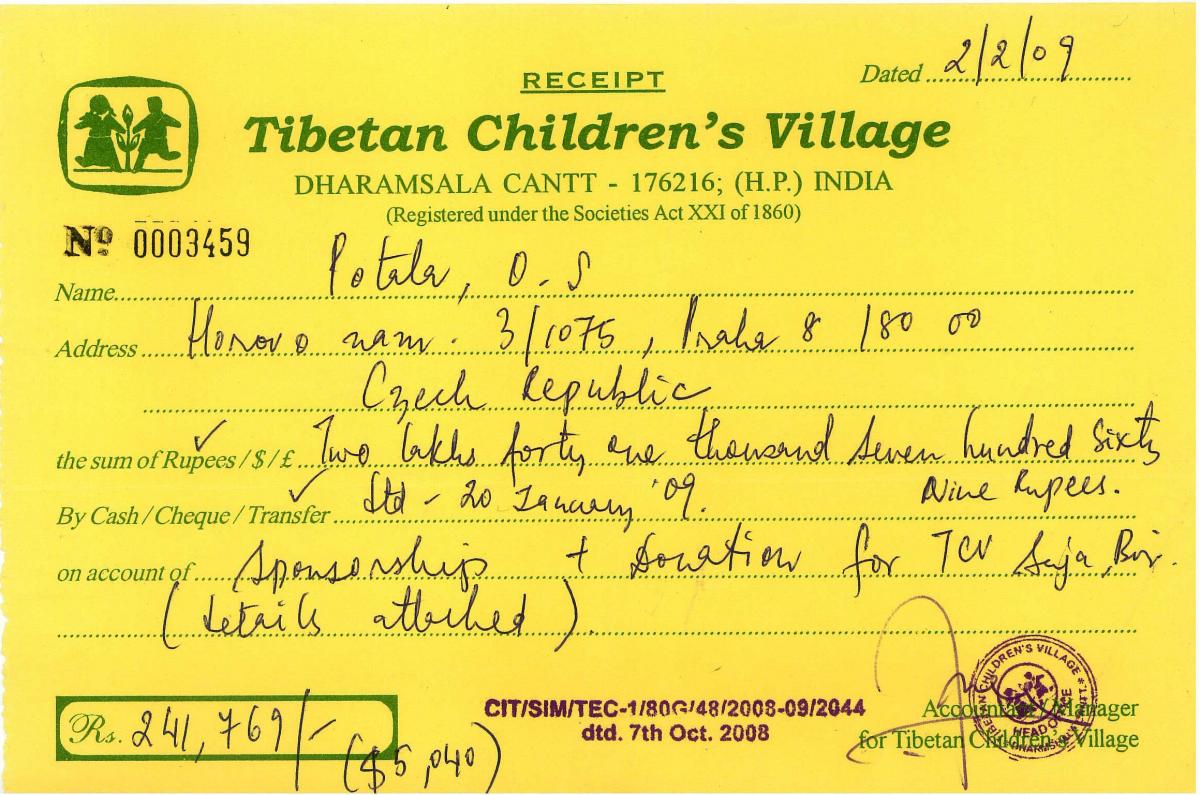 RECEIPT
Dated 2/2/09
Tibetan Children's Village
DHARAMSALA CANTT - 176216; (H.P.) INDIA
(Registered under the Societies Act XXI of 1860)
Nº 0003459
Name Potala, O.S
Address Horovo nam. 3/1075, Praha 8 180 00
Czech Republic
the sum of Rupees / $ / £ Two lakhs forty one thousand seven hundred sixty
Nine Rupees.
By Cash / Cheque / Transfer dtd - 20 January '09.
on account of Sponsorships + Donation for TCV Suja, Bir.
(details attached).
Rs. 241,769/-
($5,040)
CIT/SIM/TEC-1/80G/48/2008-09/2044
dtd. 7th Oct. 2008
Accountant / Manager
for Tibetan Children's Village
TIBETAN CHILDREN'S VILLAGE
HEAD OFFICE